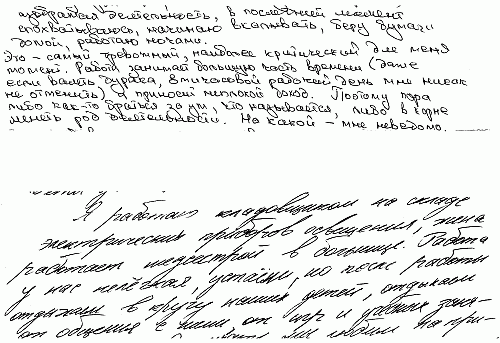 деятельность, в последний момент
спохватываюсь, начинаю вкалывать, беру бумаги
домой, работаю ночами.
Это – самый тревожный, наиболее критический для меня
момент. Работа занимает большую часть времени (даже
если валять дурака, 8 часовой рабочий день мне никак
не отменить) и приносит неплохой доход. Поэтому пора
либо как-то браться за ум, что называется, либо
менять род деятельности. На какой – мне неведомо.
Я работаю кладовщиком на складе
электрических приборов освещения, жена
работает медсестрой в больнице. Работа
у нас нелёгкая, устаём, но после работы
отдыхаем в кругу наших детей, отдыхаем
от общения с ними от игр и